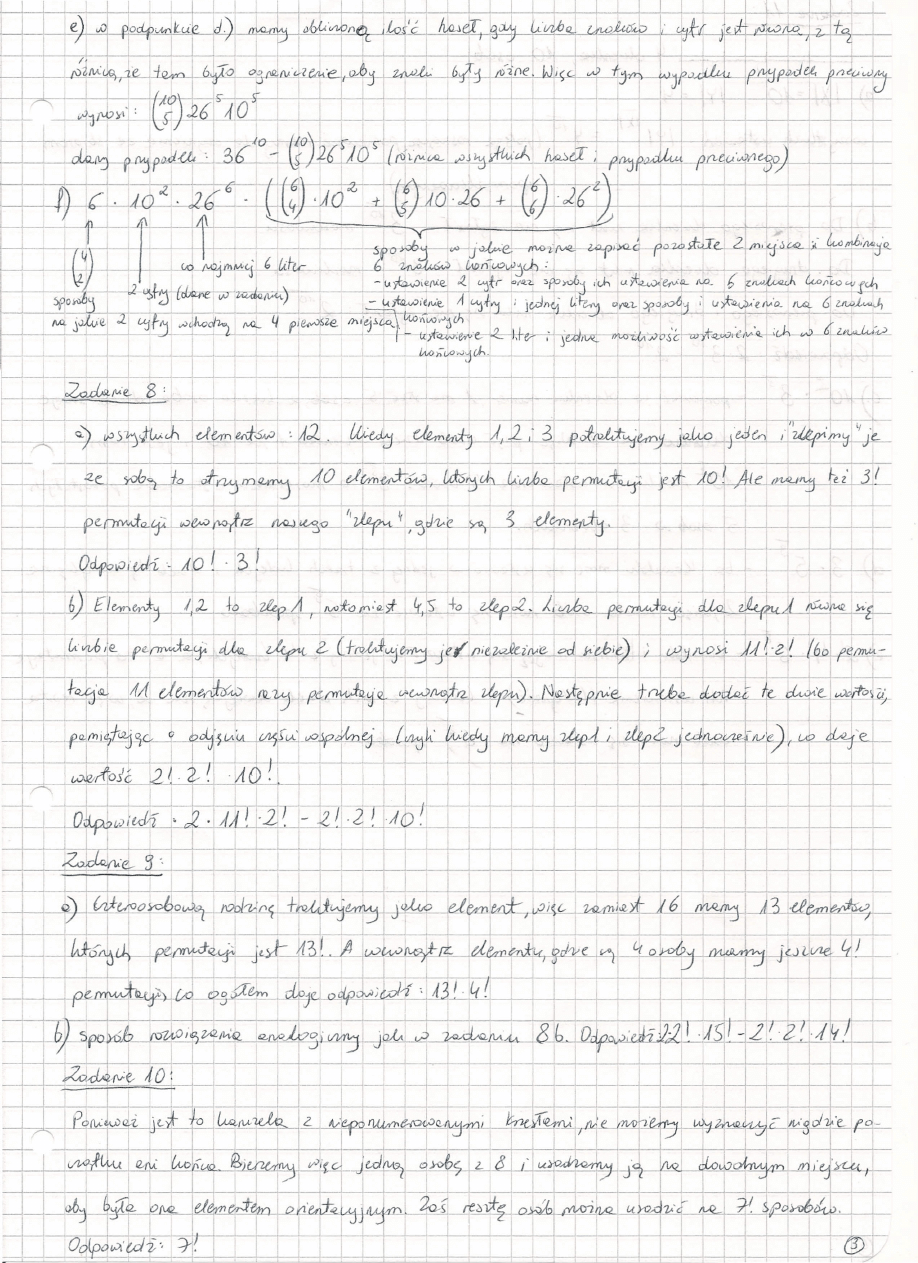 e) w podpunkcie d.) mamy obliczoną ilość haseł, gdy liczba znaków i cyfr jest równa, z tą
różnicą, że tam było ograniczenie, aby znaki były różne. Więc w tym wypadku przypadek przeciwny
wynosi: (10 5) 26^5 10^5
dany przypadek: 36^10 - (10 5) 26^5 10^5 (różnica wszystkich haseł i przypadku przeciwnego)
f) 6 · 10^2 · 26^6 · ((6 4) · 10^2 + (6 5) 10 · 26 + (6 6) · 26^2)
(4 2)
sposoby
na jakie 2 cyfry wchodzą na 4 pierwsze miejsca
2 cyfry (dane w zadaniu)
co najmniej 6 liter
sposoby w jakie można zapisać pozostałe 2 miejsca i kombinacje
6 znaków końcowych:
- ustawienie 2 cyfr oraz sposoby ich ustawienia na 6 znakach końcowych
- ustawienie 1 cyfry i jednej litery oraz sposoby i ustawienia na 6 znakach
końcowych
- ustawienie 2 liter i jedna możliwość wstawienia ich w 6 znaków
końcowych.
Zadanie 8:
a) wszystkich elementów : 12. Kiedy elementy 1, 2 i 3 potraktujemy jako jeden i "zlepimy" je
ze sobą to otrzymamy 10 elementów, których liczba permutacji jest 10! Ale mamy też 3!
permutacji wewnątrz naszego "zlepu", gdzie są 3 elementy.
Odpowiedź: 10! · 3!
b) Elementy 1,2 to zlep 1, natomiast 4,5 to zlep 2. Liczba permutacji dla zlepu 1 równa się
liczbie permutacji dla zlepu 2 (traktujemy je niezależnie od siebie) i wynosi 11! · 2! (bo permu-
tacja 11 elementów razy permutacja wewnątrz zlepu). Następnie trzeba dodać te dwie wartości,
pamiętając o odjęciu części wspólnej (czyli kiedy mamy zlep 1 i zlep 2 jednocześnie), co daje
wartość 2! · 2! · 10!.
Odpowiedź : 2 · 11! · 2! - 2! · 2! · 10!
Zadanie 9:
a) Czteroosobową rodzinę traktujemy jako element, więc zamiast 16 mamy 13 elementów,
których permutacji jest 13!. A wewnątrz elementu, gdzie są 4 osoby mamy jeszcze 4!
permutacji, co ogółem daje odpowiedź: 13! · 4!
b) sposób rozwiązania analogiczny jak w zadaniu 8b. Odpowiedź: 2·2! · 15! - 2! · 2! · 14!
Zadanie 10:
Ponieważ jest to karuzela z nieponumerowanymi krzesłami, nie możemy wyznaczyć nigdzie po-
czątku ani końca. Bierzemy więc jedną osobę z 8 i usadzamy ją na dowolnym miejscu,
aby była ona elementem orientacyjnym. Zaś resztę osób można usadzić na 7! sposobów.
Odpowiedź: 7!
3